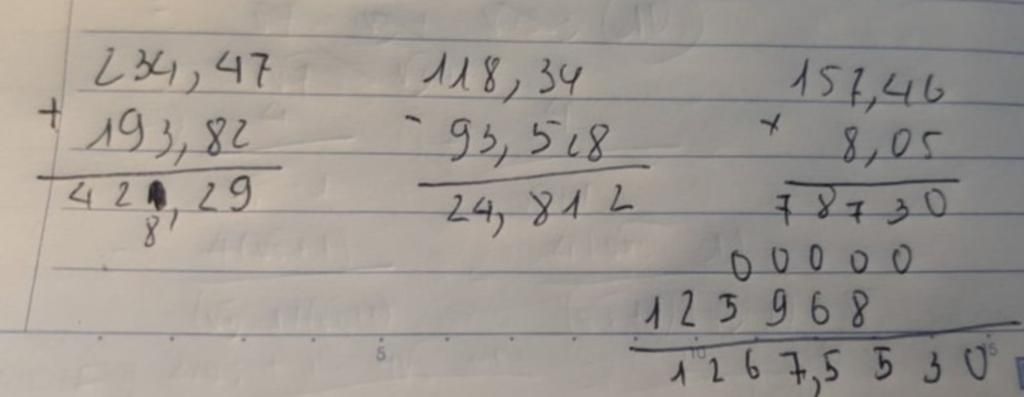 234,47
+ 193,82
42 ,29
8
118,34
- 93,528
24,812
157,46
x 8,05
78730
00000
125968
1267,5530
5
10
15